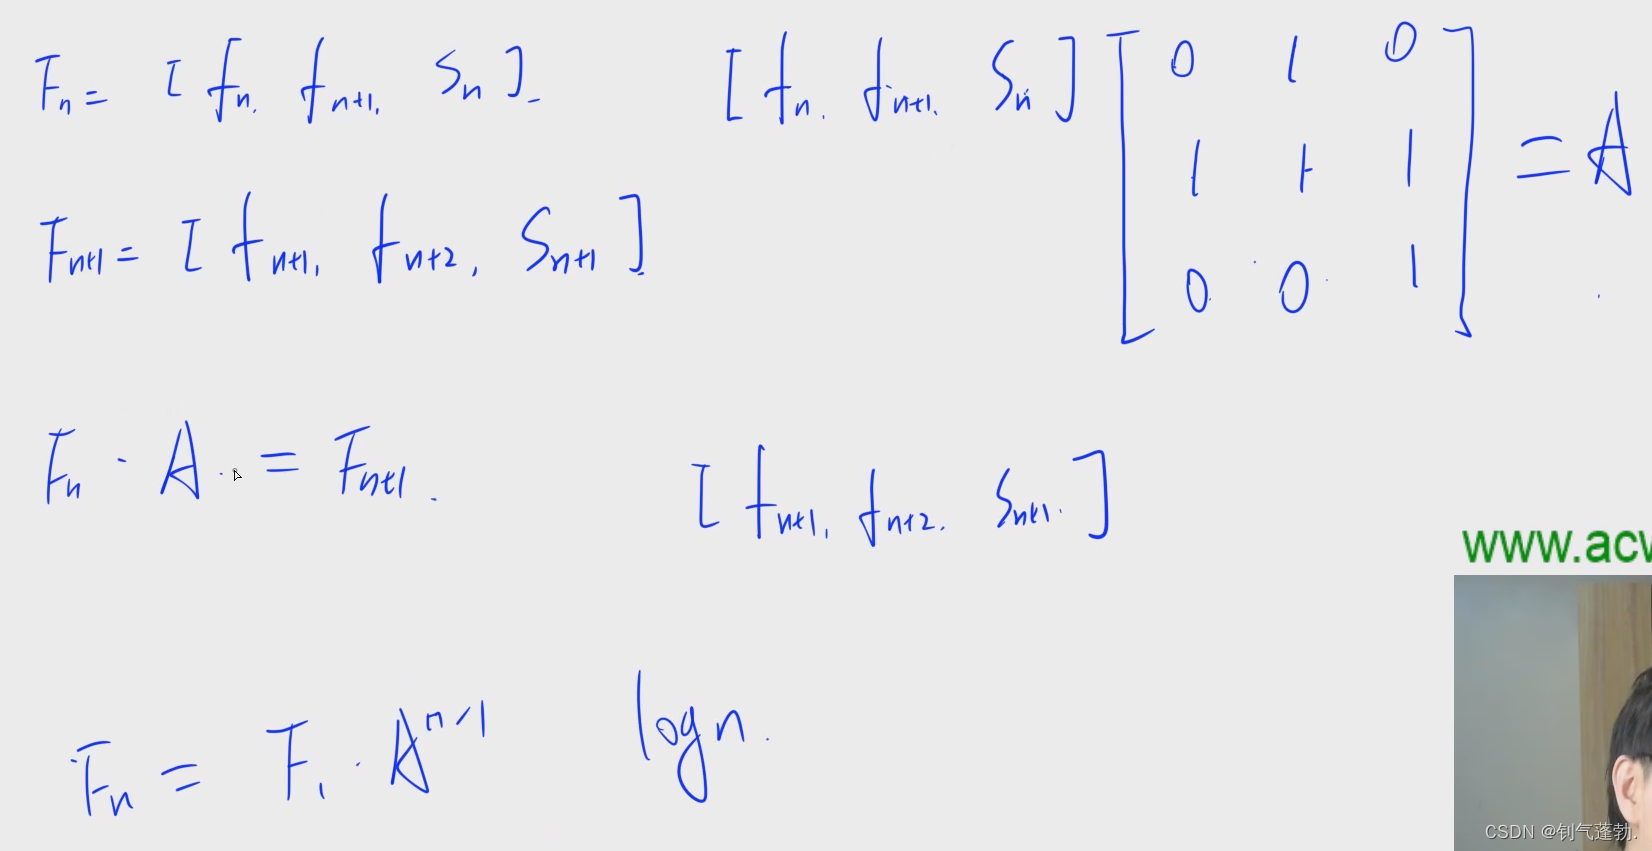 Fn = [ fn, fn+1, Sn ]
[ fn, fn+1, Sn ] [ 0 1 0
1 1 1
0 0 1 ] = A
Fn+1 = [ fn+1, fn+2, Sn+1 ]
Fn · A = Fn+1.
[ fn+1, fn+2, Sn+1. ]
www.acw
Fn = F1 · A^n-1 log n.
CSDN @钊气蓬勃.